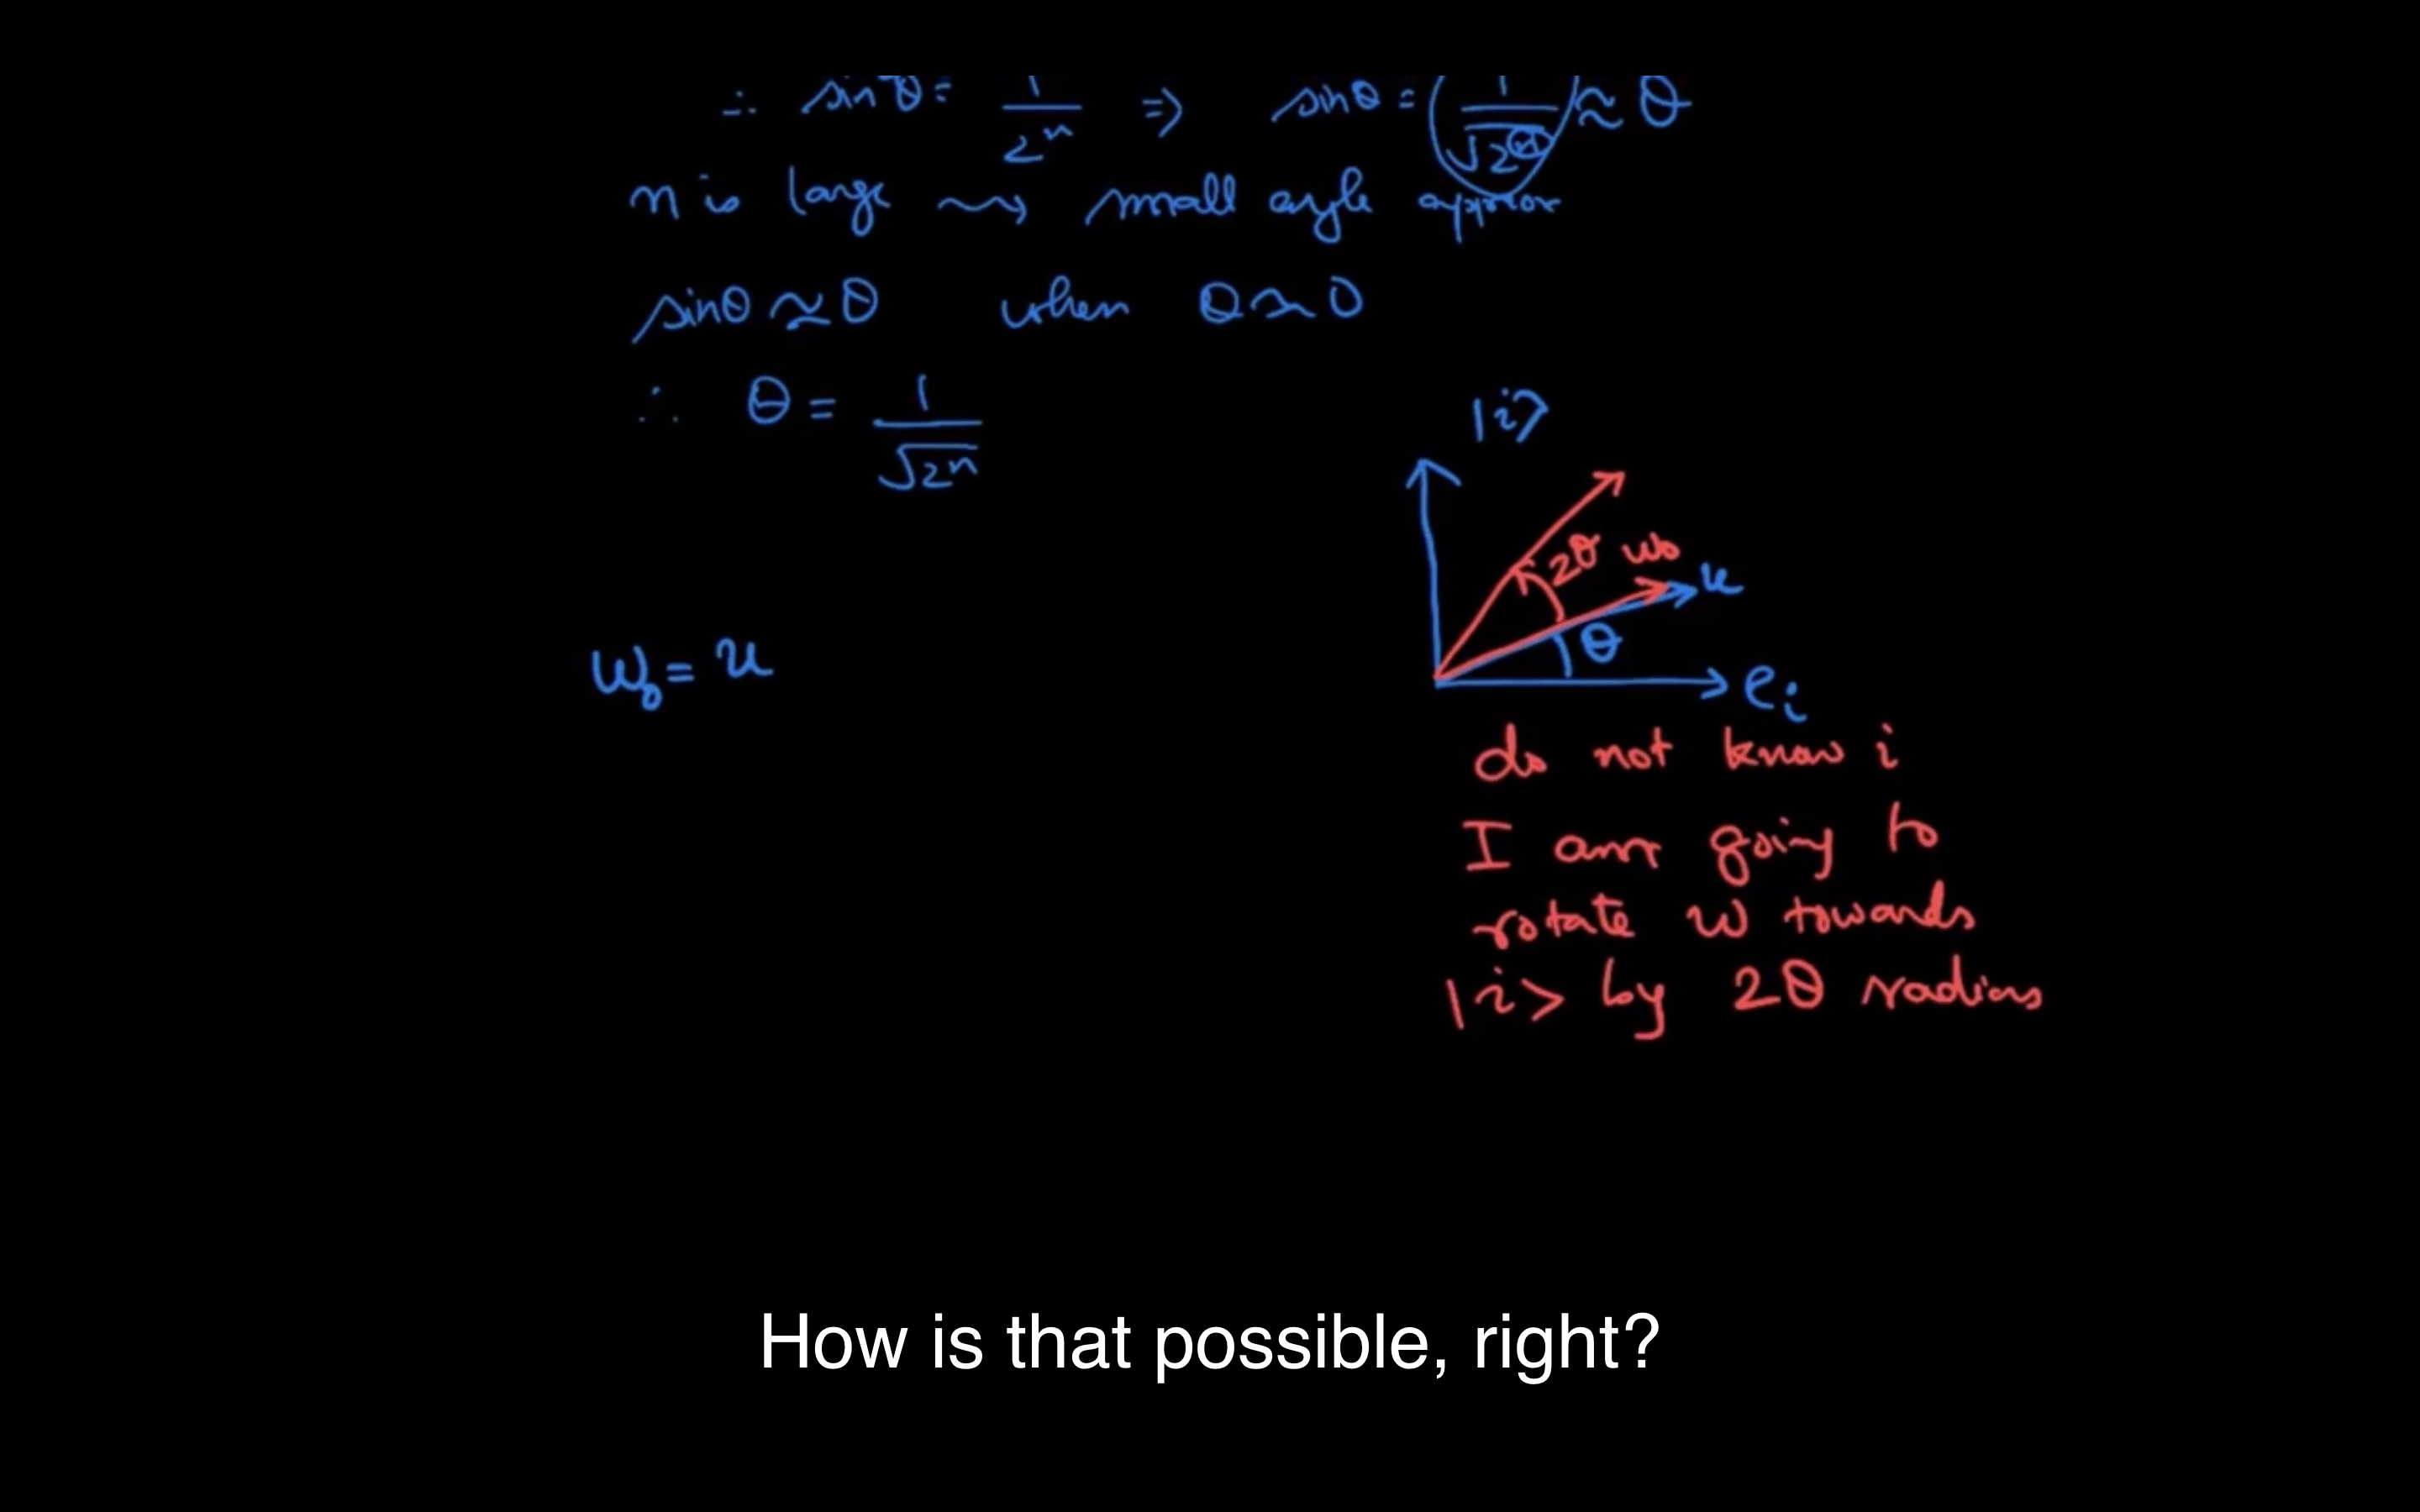 ∴ sin²θ = 1/2ⁿ ⇒ sinθ = (1/√2ⁿ) ≈ θ
n is large ⇝ small angle approx
sinθ ≃ θ when θ ≈ 0
∴ θ = 1/√2ⁿ
|i>
2θ w₀
u
θ
eᵢ
w₀ = u
do not know i
I am going to
rotate w towards
|i> by 2θ radians
How is that possible, right?